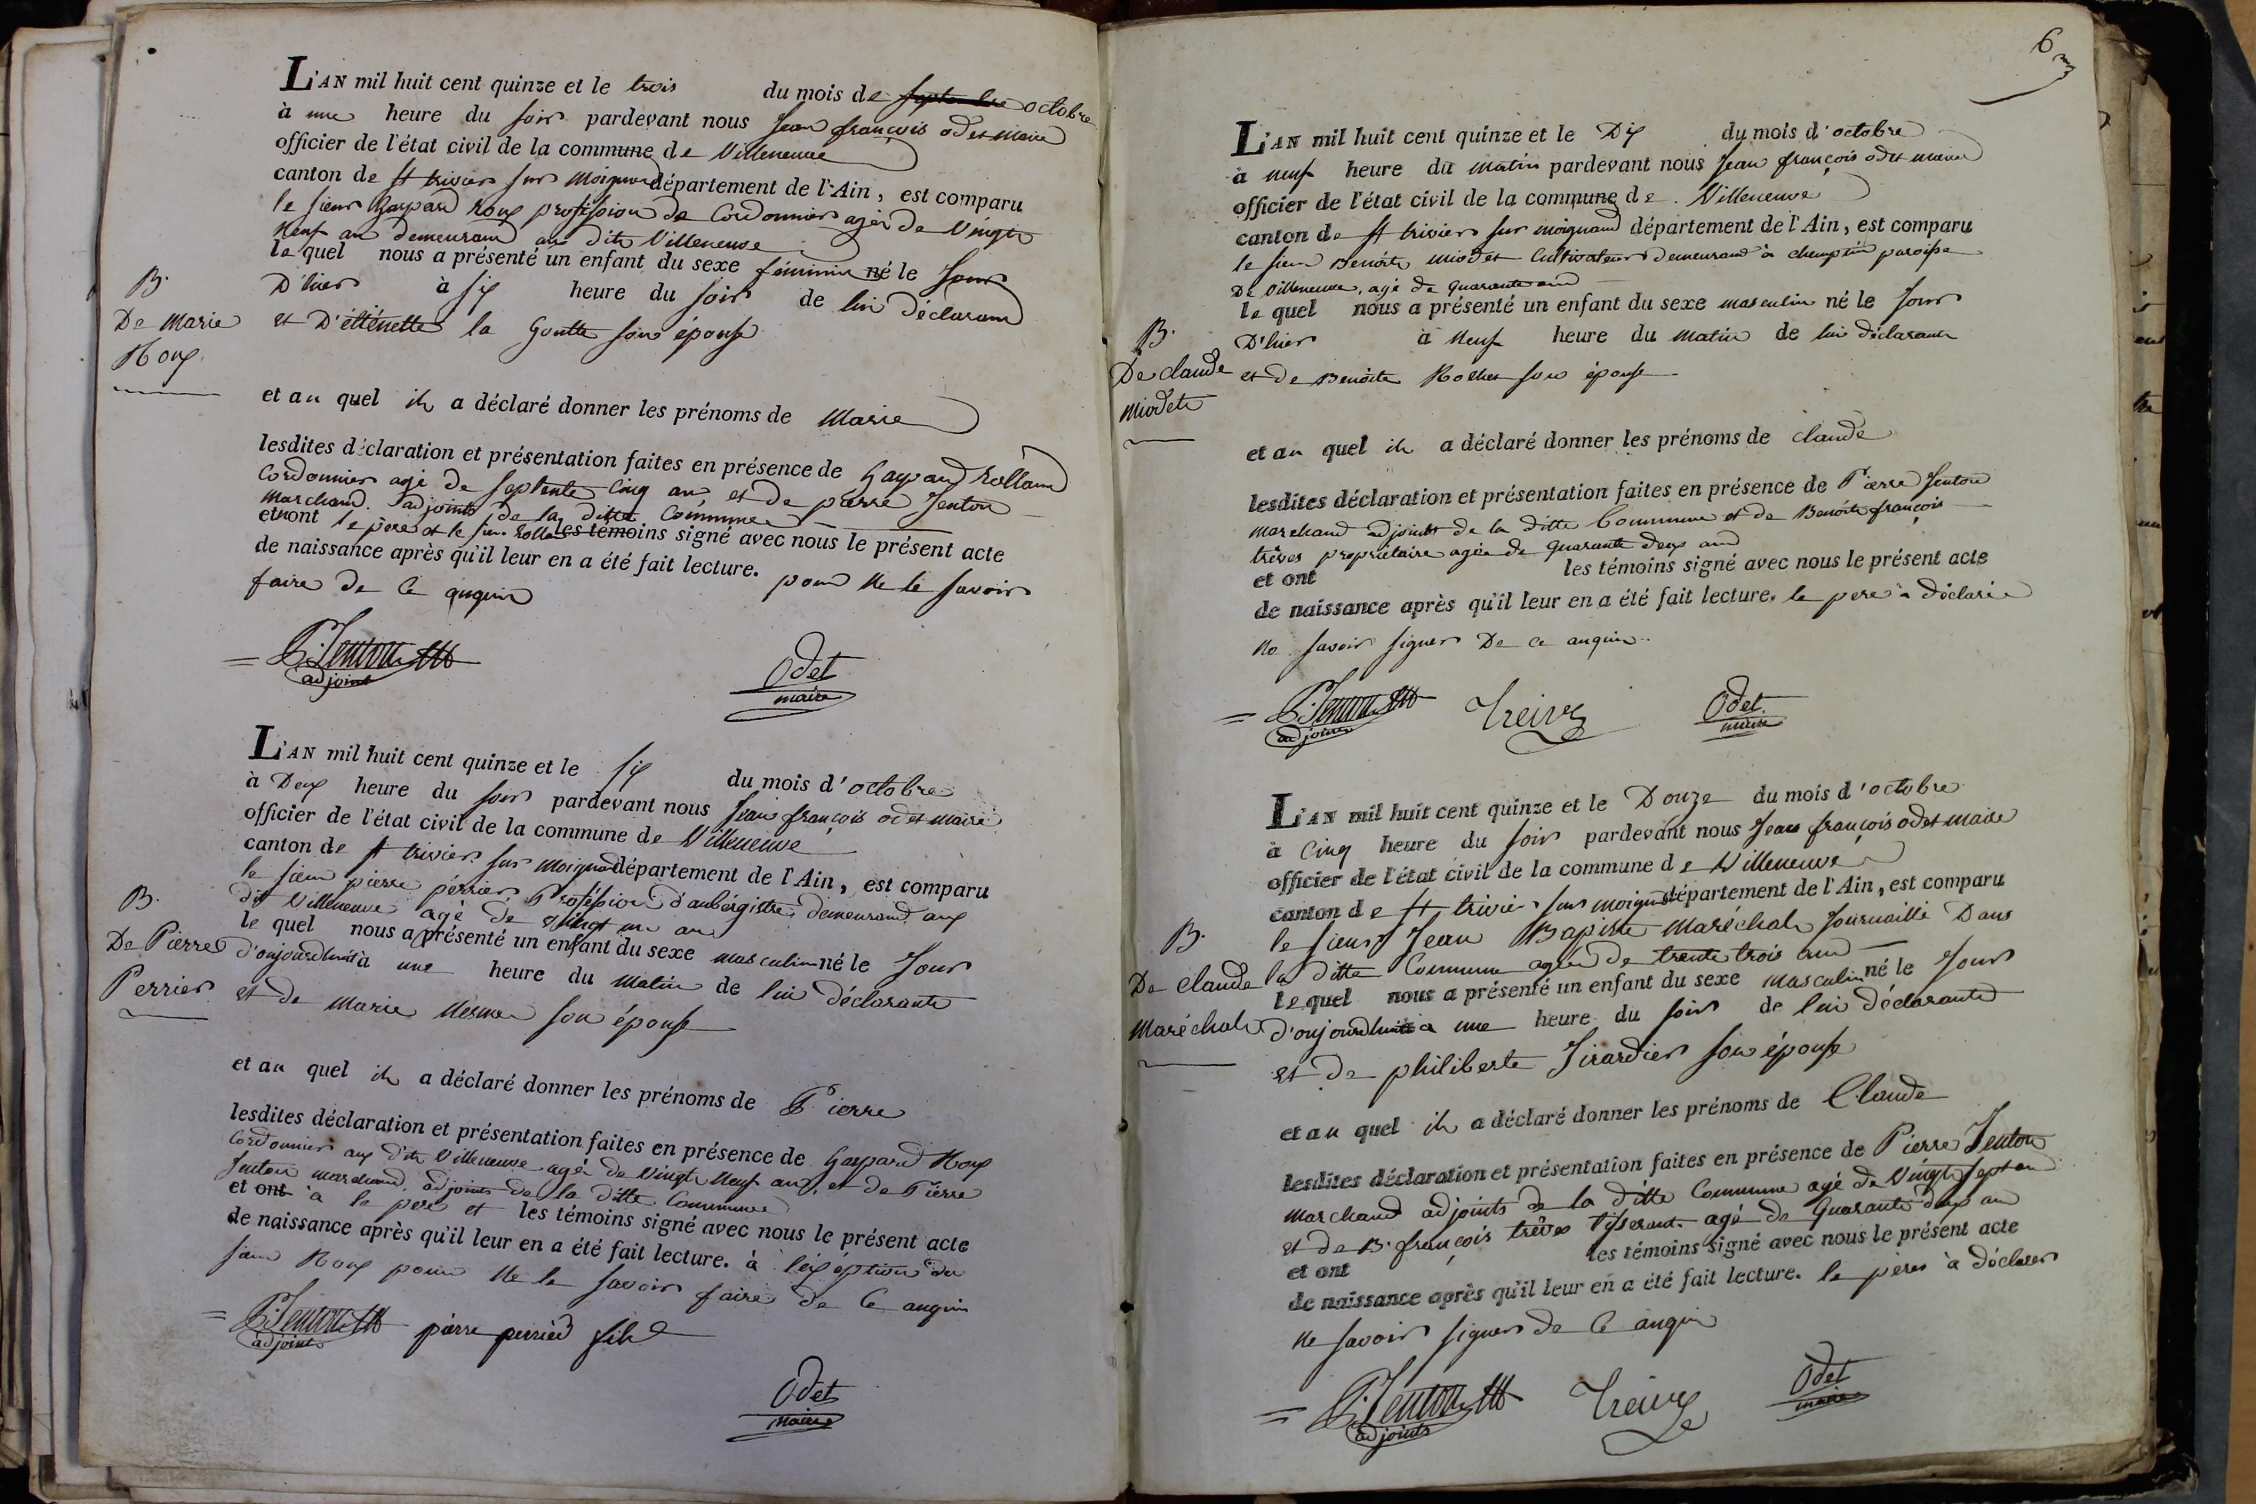 L'AN mil huit cent quinze et le trois du mois de septembre octobre
à une heure du soir pardevant nous jean françois odet maire
officier de l'état civil de la commune de Villeneuve
canton de st trivier sur moignand département de l'Ain, est comparu
le sieur Gaspard Roux profession de Cordonnier agèr de Vingt
neuf an demeurand au dit Villeneuve
le quel nous a présenté un enfant du sexe féminin né le Jour
B. D'hier à six heure du soir de lui déclarant
De Marie et D'étténette la Goutte son épouse
Roux
et au quel il a déclaré donner les prénoms de Marie
lesdites déclaration et présentation faites en présence de Gaspard Rolland
Cordonnier agé de septente cinq an et de pierre Jenton
Marchand. adjoints de la ditte Commune
et ont le pere et le sieur Rolland les témoins signé avec nous le présent acte
de naissance après qu'il leur en a été fait lecture. pour ne le savoir
faire de ce enquir
P. Jenton
adjoint
Odet
maire
L'AN mil huit cent quinze et le six du mois d'octobre
à Deux heure du soir pardevant nous jean françois odet maire
officier de l'état civil de la commune de Villeneuve
canton de st trivier sur moignand département de l'Ain, est comparu
le sieur pierre périer Proféssion d'aubérgistre demeurand aux
dit Villeneuve agé de Vingt un an
B. le quel nous a présenté un enfant du sexe masculin né le Jour
De Pierre d'oujourdhuit à une heure du matin de lui déclarant
Perrier et de marie son épouse
et au quel il a déclaré donner les prénoms de Pierre
lesdites déclaration et présentation faites en présence de Gaspard Roux
Cordonnier aux dit Villeneuve agé de Vingt Neuf an, et de Pierre
Jenton marchand, adjoints de la ditte Commune
et ont à le pere et les témoins signé avec nous le présent acte
de naissance après qu'il leur en a été fait lecture. à l'éxéption du
sieur Roux pour ne le savoir faire de ce enquir
P. Jenton
adjoint
pierre perrier fils
Odet
maire
6
L'AN mil huit cent quinze et le Dix du mois d'octobre
à neuf heure du matin pardevant nous Jean françois odet maire
officier de l'état civil de la commune de Villeneuve
canton de st trivier sur moignand département de l'Ain, est comparu
le sieur Benoite miodet Cultivateur demeurand à paroisse
De Villeneuve, agé de quarante an
le quel nous a présenté un enfant du sexe masculin né le Jour
B. D'hier à neuf heure du matin de lui déclarant
De claude et de Benoite Rollet son épouse
miodet
et au quel il a déclaré donner les prénoms de claude
lesdites déclaration et présentation faites en présence de Pierre Jenton
marchand adjoints de la ditte Commune et de Benoite françois
trêves propriétaire agée de quarante deux an
et ont les témoins signé avec nous le présent acte
de naissance après qu'il leur en a été fait lecture. le pere a déclaré
ne savoir signer De ce enquir
P. Jenton
adjoint
Treive
Odet
maire
L'AN mil huit cent quinze et le Douze du mois d'octobre
à Cinq heure du soir pardevant nous Jean françois odet maire
officier de l'état civil de la commune de Villeneuve
canton de st trivier sur moignand département de l'Ain, est comparu
B. le sieur Jean Bapiste Maréchal Journaillé Dans
De claude la ditte Commune agée de trente trois an
Maréchal le quel nous a présenté un enfant du sexe masculin né le Jour
d'oujourdhuit à une heure du soir de lui déclarant
et de philiberte Jirardier son épouse
et au quel il a déclaré donner les prénoms de Claude
lesdites déclaration et présentation faites en présence de Pierre Jenton
marchand adjoints de la ditte Commune agé de Vingt sept an
et de B. françois trêves tisserant agé de Quarante deux an
et ont les témoins signé avec nous le présent acte
de naissance après qu'il leur en a été fait lecture. le père à déclarer
ne savoir signer de ce enquir
P. Jenton
adjoints
Treive
Odet
maire